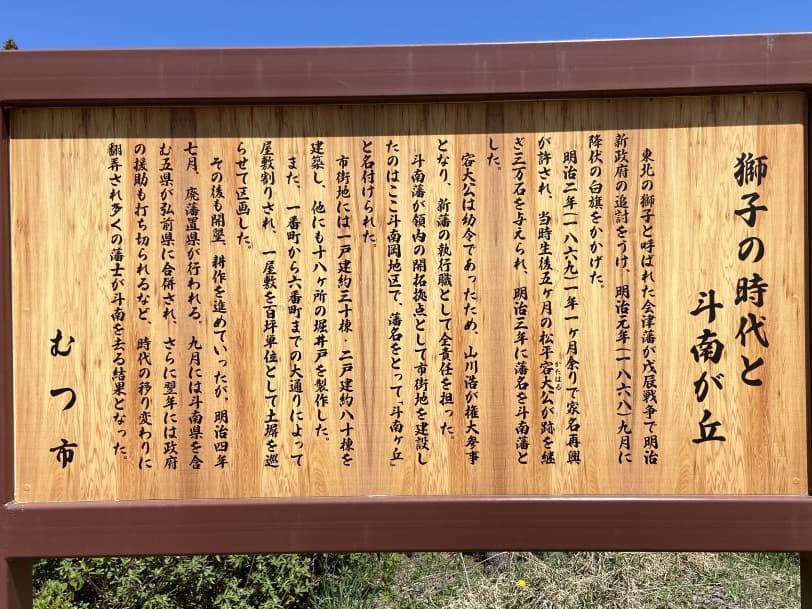 獅子の時代と
斗南が丘
東北の獅子と呼ばれた会津藩が戊辰戦争で明治
新政府の追討をうけ、明治元年(一八六八)九月に
降伏の白旗をかかげた。
明治二年(一八六九)一年一ヶ月余りで家名再興
が許され、当時生後五ヶ月の松平容大公が跡を継
かたはる
ぎ三万石を与えられ、明治三年に藩名を斗南藩と
した。
容大公は幼令であったため、山川浩が権大参事
となり、新藩の執行職として全責任を担った。
斗南藩が領内の開拓拠点として市街地を建設し
たのはここ斗南岡地区で、藩名をとって「斗南ヶ丘」
と名付けられた。
市街地には一戸建約三十棟・二戸建約八十棟を
建築し、他にも十八ヶ所の堀井戸を製作した。
また、一番町から六番町までの大通りによって
屋敷割りされ、一屋敷を百坪単位として土塀を巡
らせて区画した。
その後も開墾、耕作を進めていったが、明治四年
七月、廃藩置県が行われる、九月には斗南県を含
む五県が弘前県に合併され、さらに翌年には政府
の援助も打ち切られるなど、時代の移り変わりに
翻弄され多くの藩士が斗南を去る結果となった。
むつ市